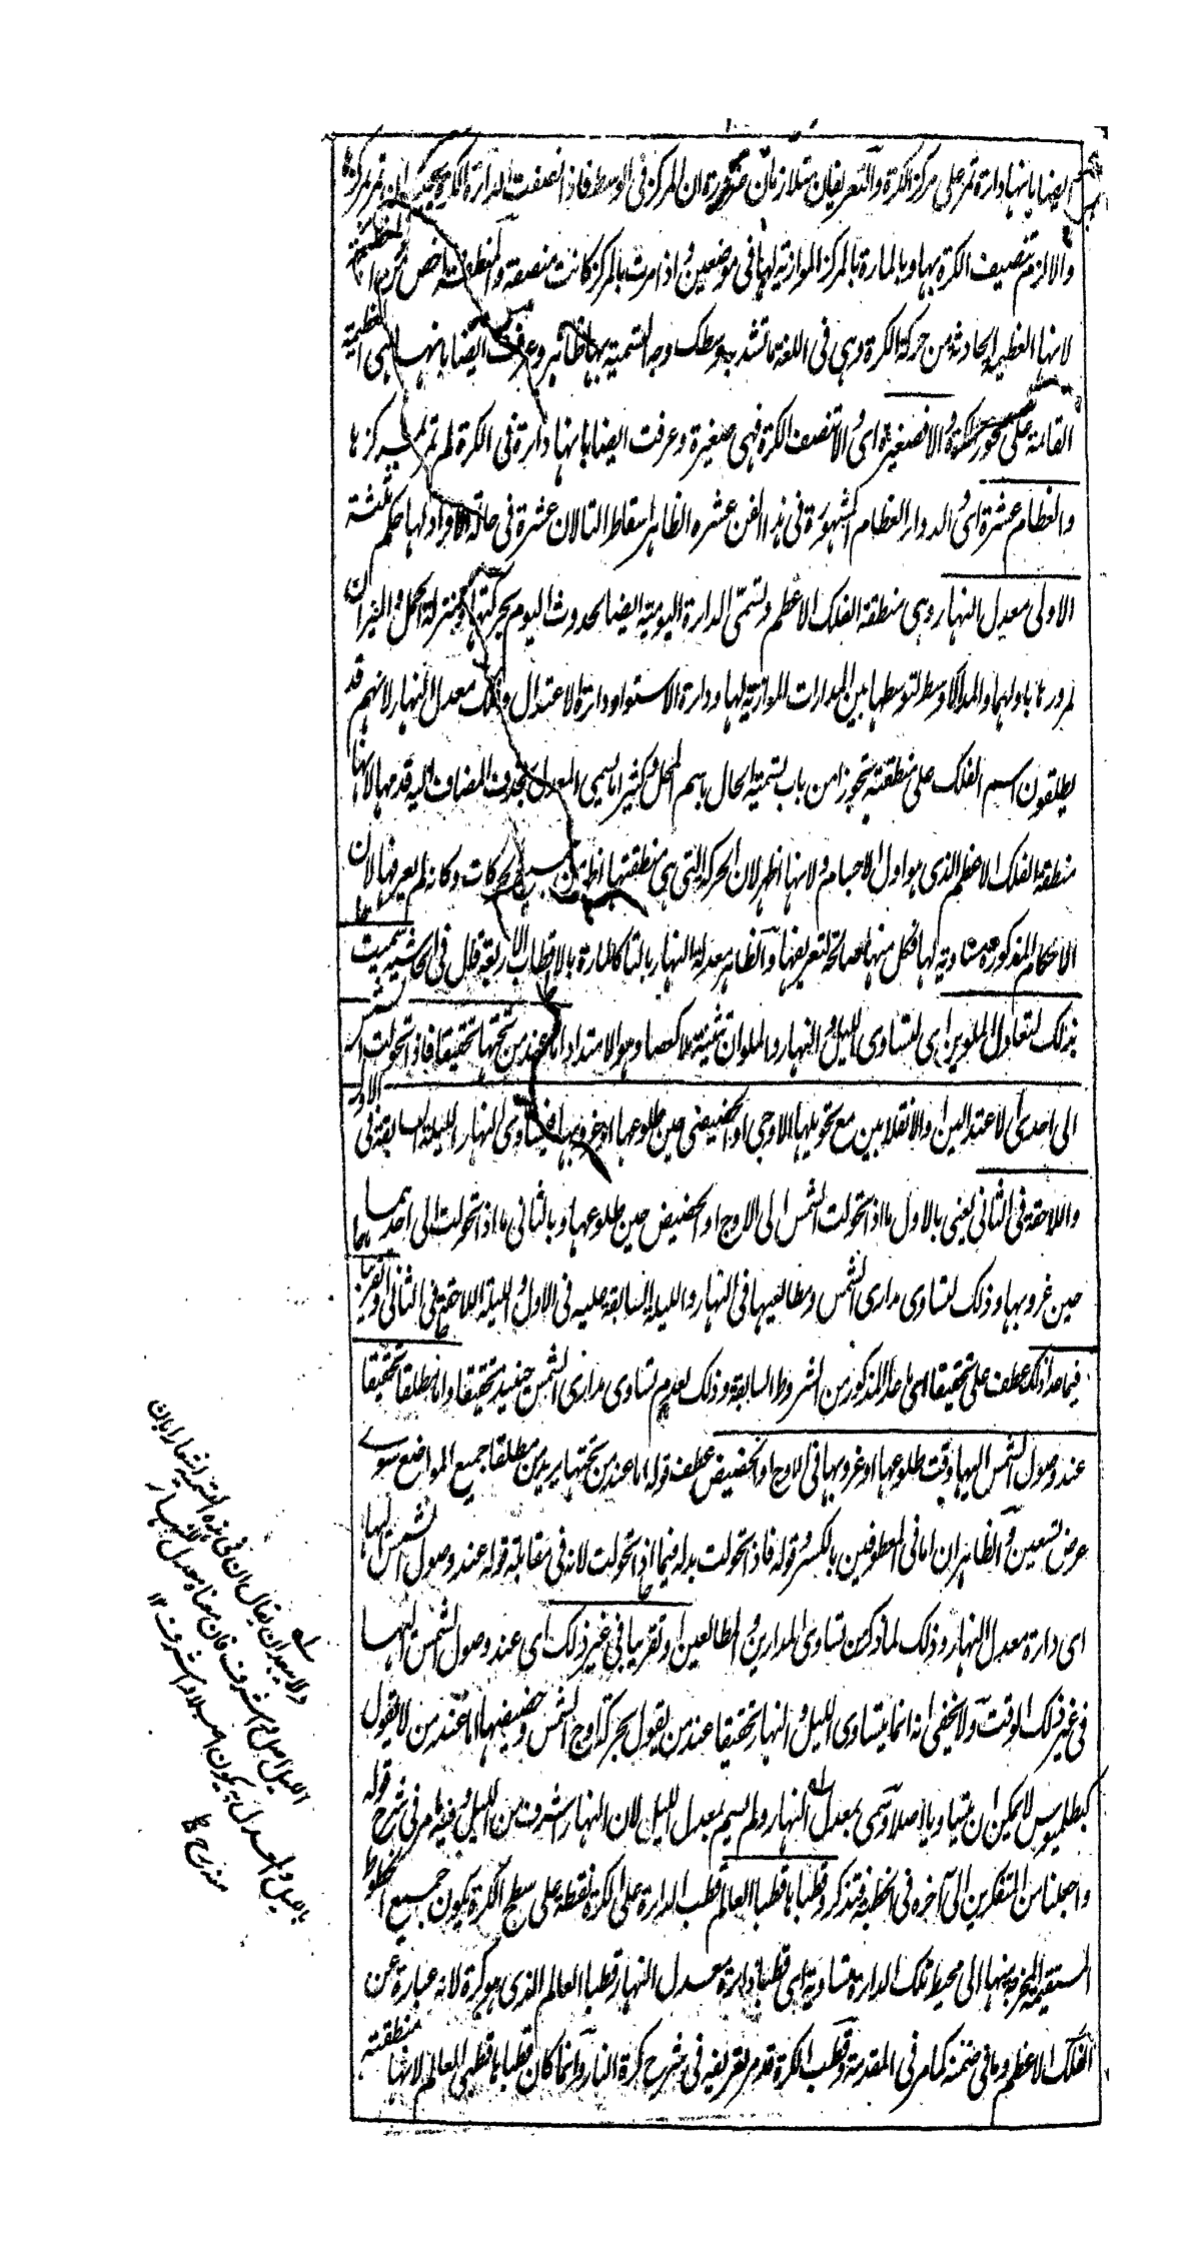 ايضا بانها دائرة تمر على مركز الكرة والتعريفان متلازمان ضرورة ان المركز فى الوسط فاذا نصفت الدائرة الكرة يجب ان تمر بمركزها
والا لزم تنصيف الكرة بها وبالمارة بالمركز الموازية لها فى موضعين واذا مرت بالمركز كانت منصفة والمنطقة اخص من العظيمة
لانها العظيمة الحادثة من حركة الكرة وهى فى اللغة ما تشد به وسطك وجه التسمية بها ظاهر وعرفت ايضا بانها هى العظيمة
القائمة على محور الكرة والا فصغيرة اى وان لا تنصف الكرة فهى صغيرة وعرفت ايضا بانها دائرة فى الكرة لم تمر بمركزها
والعظام عشرة اى الدوائر العظام المشهورة فى هذا الفن عشره الظاهر اسقاط التاء لان عشرة فى حالة الافراد لها حكم ثلثة
الاولى معدل النهار وهى منطقة الفلك الاعظم وتسمى الدائرة اليومية ايضا لحدوث اليوم بحركتها ومنزلة الحمل والميزان
لمرورها باوليهما والمدار الاوسط لتوسطها بين المدارات الموازية لها ودائرة الاستواء ودائرة الاعتدال وفلك معدل النهار لانهم قد
يطلقون اسم الفلك على منطقته تجوزا من باب تسمية الحال باسم المحل وكثيرا ما يسمى المعدل بحذف المضاف اليه قدمها لانها
منطقة الفلك الاعظم الذى هو اول الاجسام ولانها اظهر لان الحركة التى هى منطقتها اظهر الحركات وكانه لم يعرفها لان
الاحكام المذكورة مساوية لها فكل منها صالحة لتعريفها والظاهر معدلة النهار بالتاء كالمارة بالاقطاب الاربعة قال فى الحاشية سميت
بذلك لتعادل الملوين اى لتساوى الليل والنهار والملوان تثنية ملا كعصا وهو الامتداد اما عند من تحتها تحقيقا فاذا تحولت الشمس
الى احدى الاعتدالين او الانقلابين مع تحويلها الاوجى او الحضيضى حين طلوعها او غروبها فيتساوى النهار الليلة السابقة فى الاول
واللاحقة فى الثانى يعنى بالاول ما اذا تحولت الشمس الى الاوج او الحضيض حين طلوعها وبالثانى ما اذا تحولت الى احدهما
حين غروبها وذلك لتساوى مدارى الشمس ومطالعيها فى النهار والليلة السابقة عليه فى الاول والليلة اللاحقة فى الثانى او تقريبا
فيما عدا ذلك عطف على تحقيقا اى ما عدا المذكور من الشروط السابقة وذلك لعدم تساوى مدارى الشمس حينئذ تحقيقا واما مطلقا تحقيقا
عند وصول الشمس اليها وقت طلوعها او غروبها فى الاوج او الحضيض عطف قوله اما عند من تحتها يريد من مطلقا جميع المواضع سوى
عرض تسعين والظاهر ان اما فى المعطوفين بالكسر وقوله فاذا تحولت بدله فيما اذا تحولت لانه فى مقابلة قوله عند وصول الشمس اليها
اى دائرة معدل النهار وذلك لما ذكر من تساوى المدارين والمطالعين او تقريبا فى غير ذلك اى عند وصول الشمس اليها
فى غير ذلك الوقت ولا يخفى انه انما يتساوى الليل والنهار تحقيقا عند من يقول بحركة اوج الشمس وحضيضها اما عند من لا يقول
كبطلميوس لا يمكن ان يتساويا اصلا وسمى بمعدل النهار ولم يسم بمعدل الليل لان النهار اشرف من الليل وفيه ما مر فى شرح قوله
واجعلنا من المتفكرين الى آخره فى الخطبة فتذكر وقطباها قطبا العالم قطب الدائرة على الكرة نقطة على سطح الكرة يكون جميع الخطوط
المستقيمة المخرجة منها الى محيط تلك الدائرة متساوية اى قطبا دائرة معدل النهار قطبا العالم الذى هو كرة لانه عبارة عن
الفلك الاعظم وما فى ضمنه كما مر فى المقدمة وقطب الكرة قد مر تعريفه فى شرح كرة النار وانما كان قطباها قطبى العالم لانها منطقته
ولا يبعد ان يقال ان فى هذه التسمية اشعارا بان
الليل اصل والنهار اشرف فان معناه معدل النهار
بالليل والمعدل به يكون اصلا والمعدل اشرف ١٢
منه رح